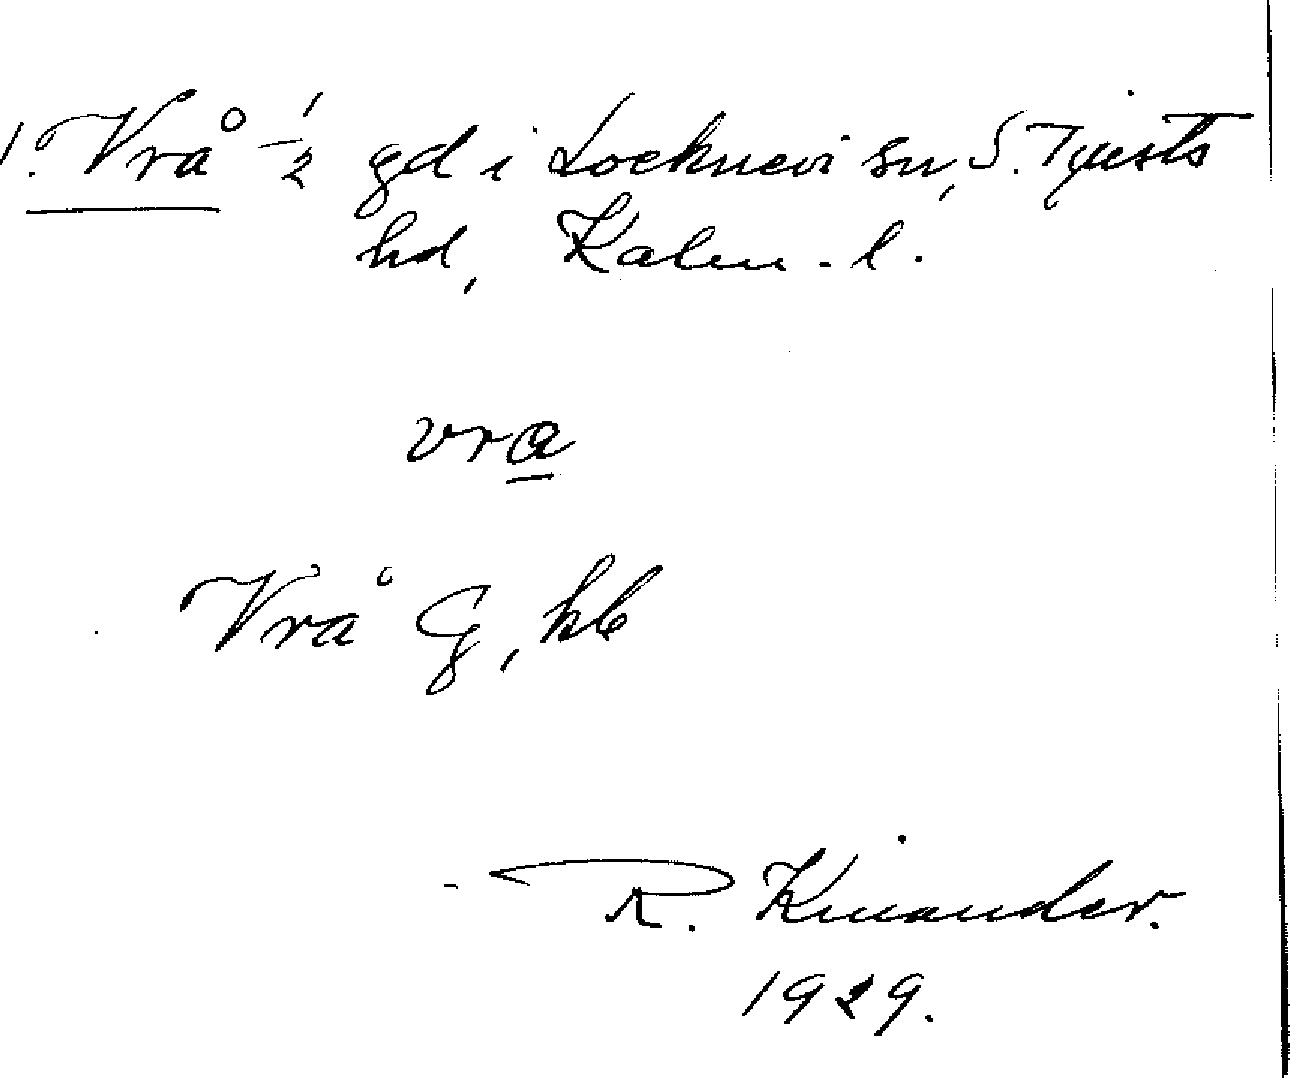 1. Vrå ½ gd i Locknevi sn, S. Tjusts
hd, Kalm. l.
vra
Vrå G, kb
R. Kinander.
1929.